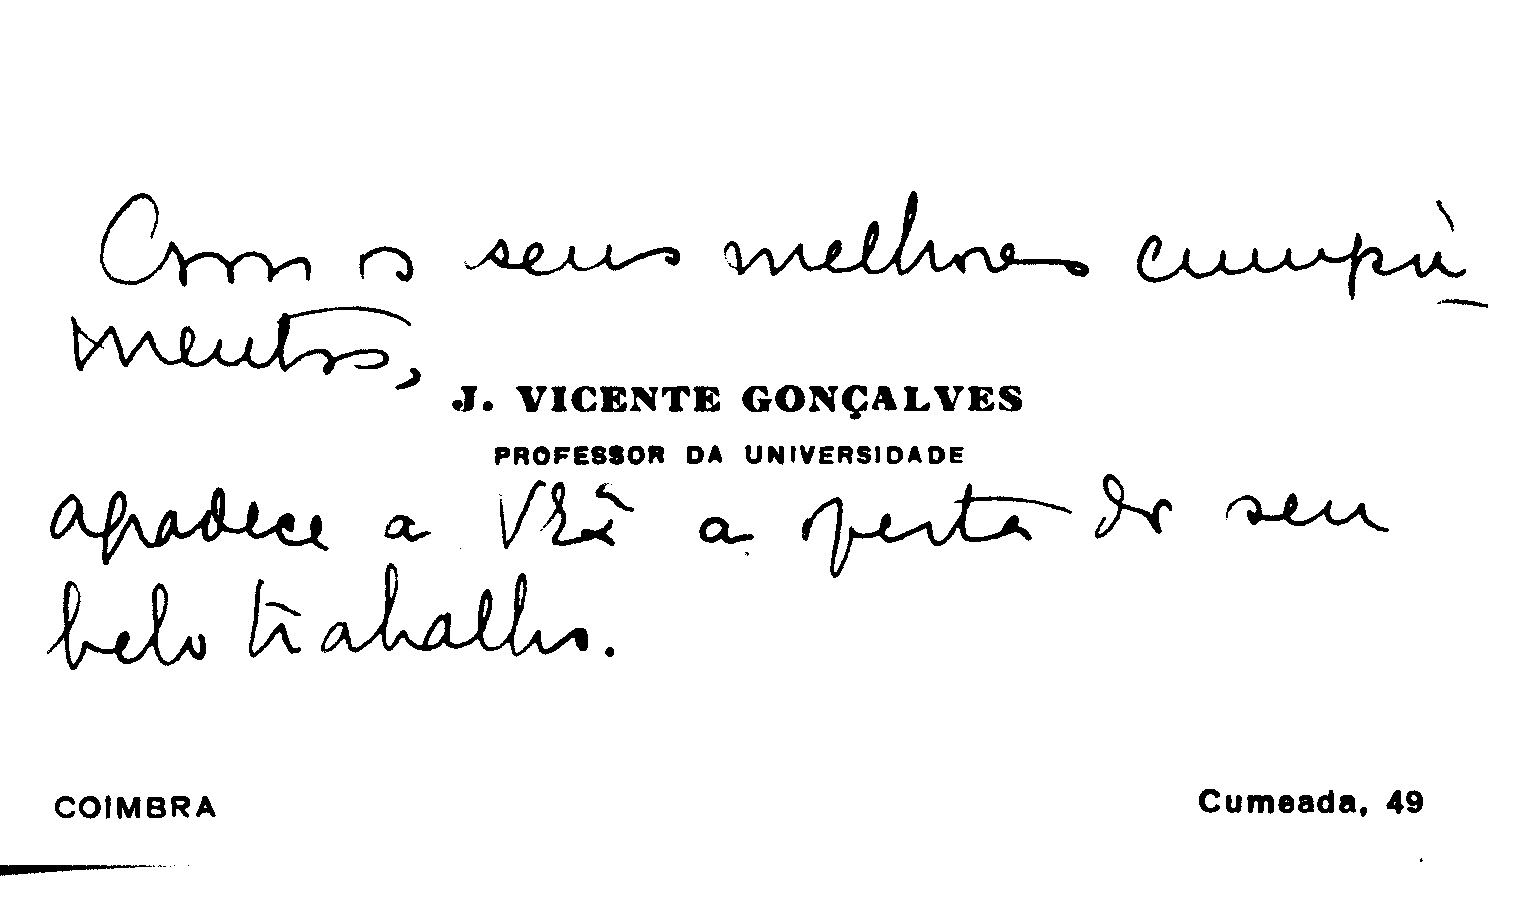 Com os seus melhores cumpri-
mentos,
J. VICENTE GONÇALVES
PROFESSOR DA UNIVERSIDADE
agradece a V. Exª a oferta do seu
belo trabalho.
COIMBRA
Cumeada, 49